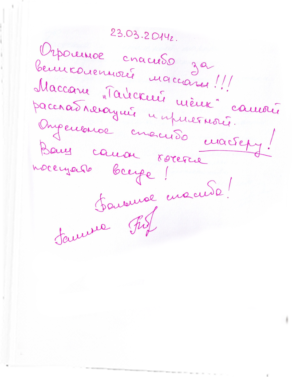 23.03.2014г.
Огромное спасибо за
великолепный массаж!!!
Массаж „Тайский шёлк" самый
расслабляющий и приятный.
Отдельное спасибо мастеру!
Ваш салон хочется
посещать всегда!
Большое спасибо!
Галина